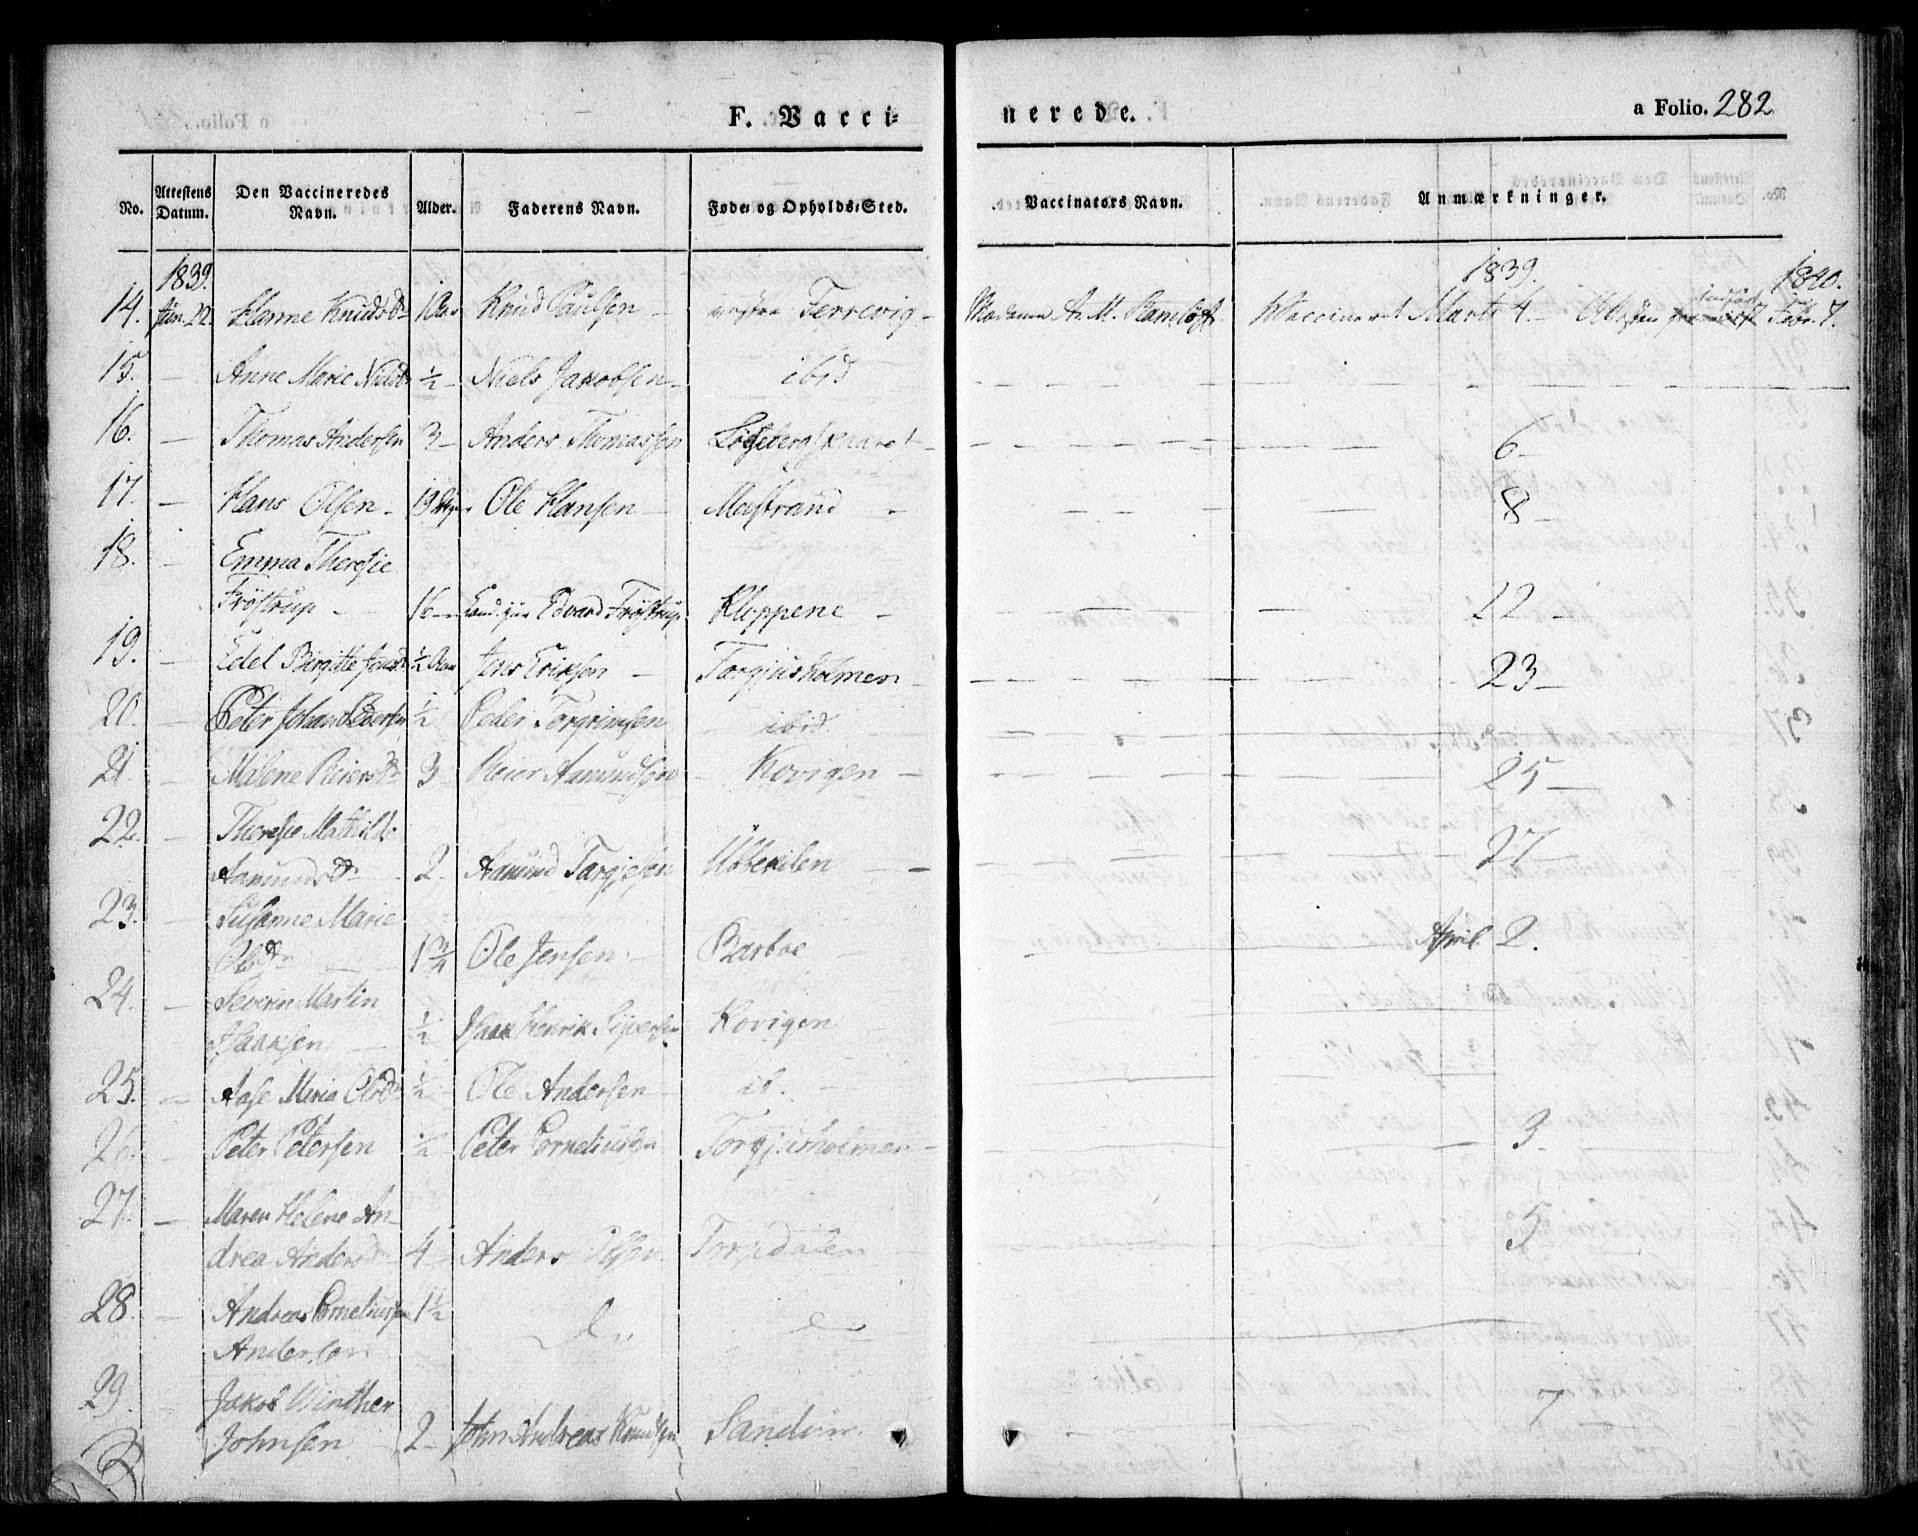 F. Vacci=
nerede.
a Folio. 282
No.
Attestens Datum.
Den Vaccineredes Navn.
Alder.
Faderens Navn.
Føde= og Opholds=Sted.
Vaccinators Navn.
Anmærkninger.
1839. 1839. 1840.
14. Jan. 22. Hanne Knudsd. 1 Aar Knud Paulsen - Ferrevig - Madame A. M. Vaccineret Marts 4. Febr. 7.
15. - Anne Marie Nielsd. ½ - Niels Jakobsen - ibid
16. - Thomas Andersen 3 - Anders Thomassen - 6 -
17. - Hans Olsen - 19 Ole Hansen - 8 -
18. - Emma Theresie
Fröstrup - 16 - Edvard Fröstrup Kloppene - 22 -
19. - Edel Birgitte Jensd. ½ Aar Jens Eriksen - Torgjusholmen - 23 -
20. - Peter Johan Pedersen ½ Peder Torgrimsen ibid.
21. - Malene Reiersd. 3 - Reier Aamundsen - Kovigen - 25 -
22. - Theresie Mathilde
Aamundsd. - 2. Aamund Targjesen Ubbekilen - 27
23. - Susanne Marie
Olsd. 1¾ Ole Jensen - Barboe - April 2.
24. - Severin Martin
Isaaksen - ½ Isaak Henrik Kovigen -
25. - Aase Maria Olsd. ½ Ole Andersen - ib.
26. - Peter Petersen ½ Peter Corneliussen Torgjusholmen - 3.
27. - Maren Helene An-
drea Andersd. 4 - Anders Olsen. Torpdalen 5
28. - Andreas Corneliussen 1½
Andersen
29. Jakob Winther
Johnsen 2 - John Andreas Knudsen Sandum. 7